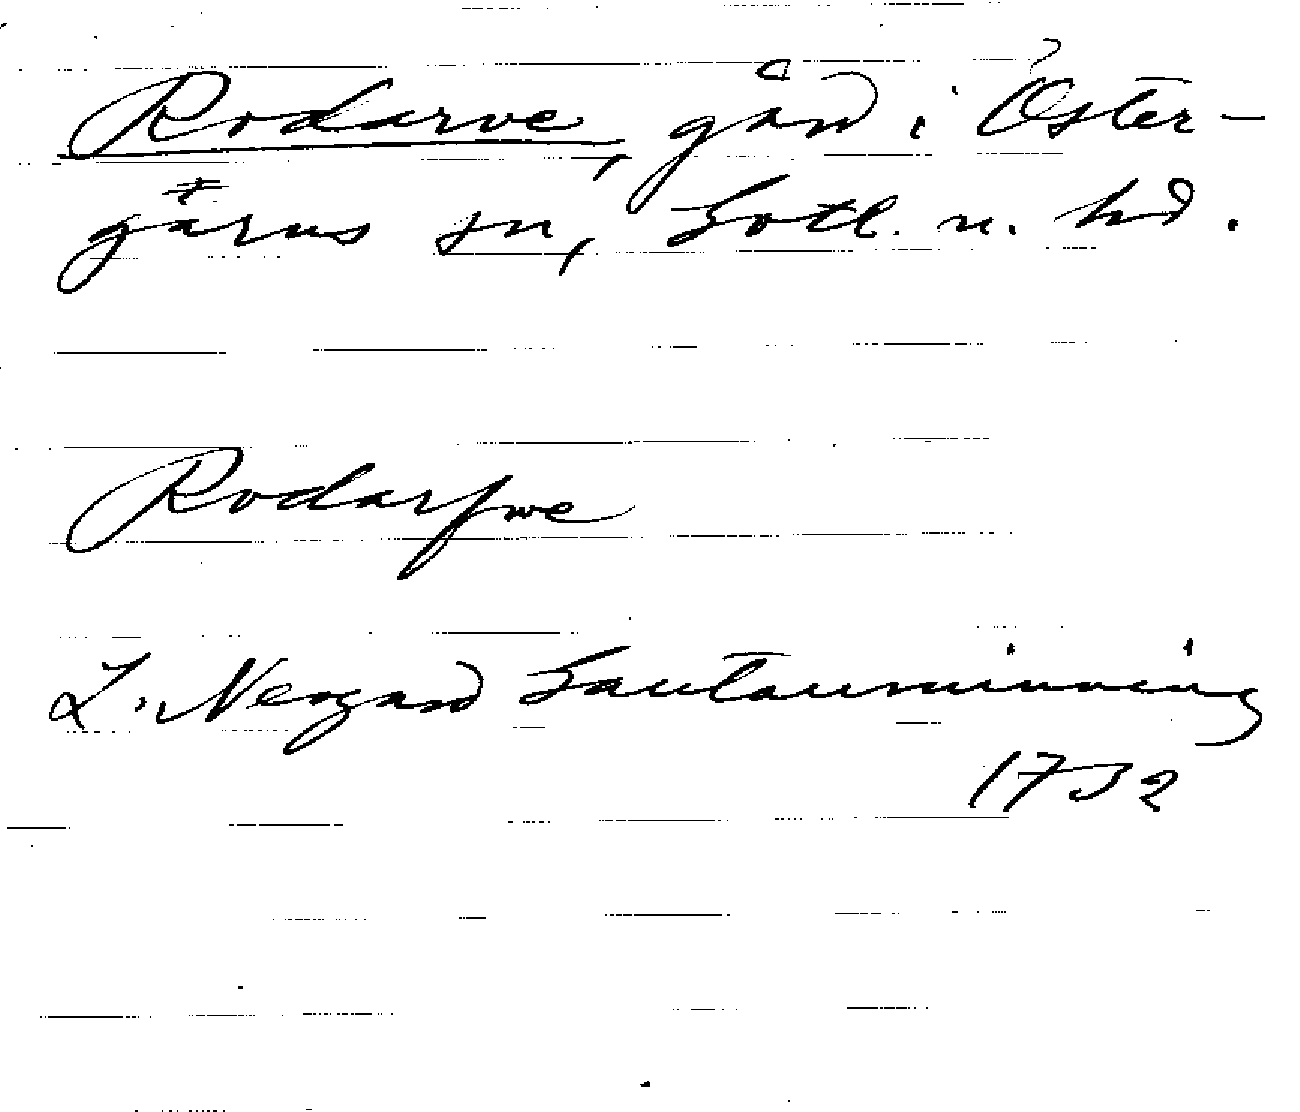 Rodarve, gård i Öster-
gärns sn, Gotl. n. hd.
Rodarfwe
L. Neogard Gautauminning
1732